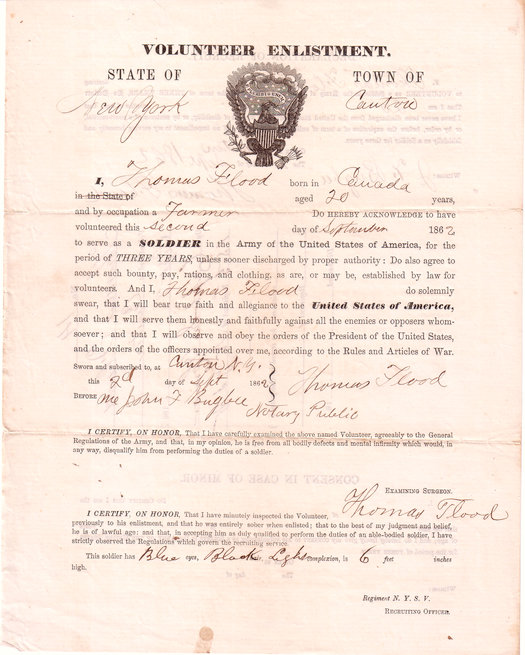 VOLUNTEER ENLISTMENT.
STATE OF TOWN OF
New York Canton
I, Thomas Flood born in Canada
in the State of aged 20 years,
and by occupation a Farmer Do HEREBY ACKNOWLEDGE to have
volunteered this second day of September 1862
to serve as a SOLDIER in the Army of the United States of America, for the
period of THREE YEARS, unless sooner discharged by proper authority: Do also agree to
accept such bounty, pay, rations, and clothing, as are, or may be, established by law for
volunteers. And I, Thomas Flood do solemnly
swear, that I will bear true faith and allegiance to the United States of America,
and that I will serve them honestly and faithfully against all the enemies or opposers whom-
soever; and that I will observe and obey the orders of the President of the United States,
and the orders of the officers appointed over me, according to the Rules and Articles of War.
Sworn and subscribed to, at Canton N.Y.
this 2d day of Sept 1862 Thomas Flood
BEFORE me John F Bugbee
Notary Public
I CERTIFY, ON HONOR, That I have carefully examined the above named Volunteer, agreeably to the General
Regulations of the Army, and that, in my opinion, he is free from all bodily defects and mental infirmity which would, in
any way, disqualify him from performing the duties of a soldier.
CONSENT IN CASE OF MINOR
EXAMINING SURGEON.
Thomas Flood
I CERTIFY, ON HONOR, That I have minutely inspected the Volunteer,
previously to his enlistment, and that he was entirely sober when enlisted; that to the best of my judgment and belief,
he is of lawful age; and that, in accepting him as duly qualified to perform the duties of an able-bodied soldier, I have
strictly observed the Regulations which govern the recruiting service.
This soldier has Blue eyes, Black Light complexion, is 6 feet inches
high.
Regiment N. Y. S. V.
RECRUITING OFFICER.